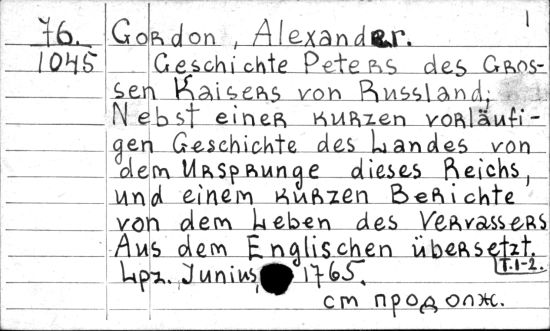 1
76. Gordon, Alexander.
1045 Geschichte Peters des Gros-
sen Kaisers von Russland;
Nebst einer kurzen vorläufi-
gen Geschichte des Landes von
dem Ursprunge dieses Reichs,
und einem kurzen Berichte
von dem Leben des Vervassers
Aus dem Englischen übersetzt.
Lpz. Junius, 1765. T.1-2.
см продолж.